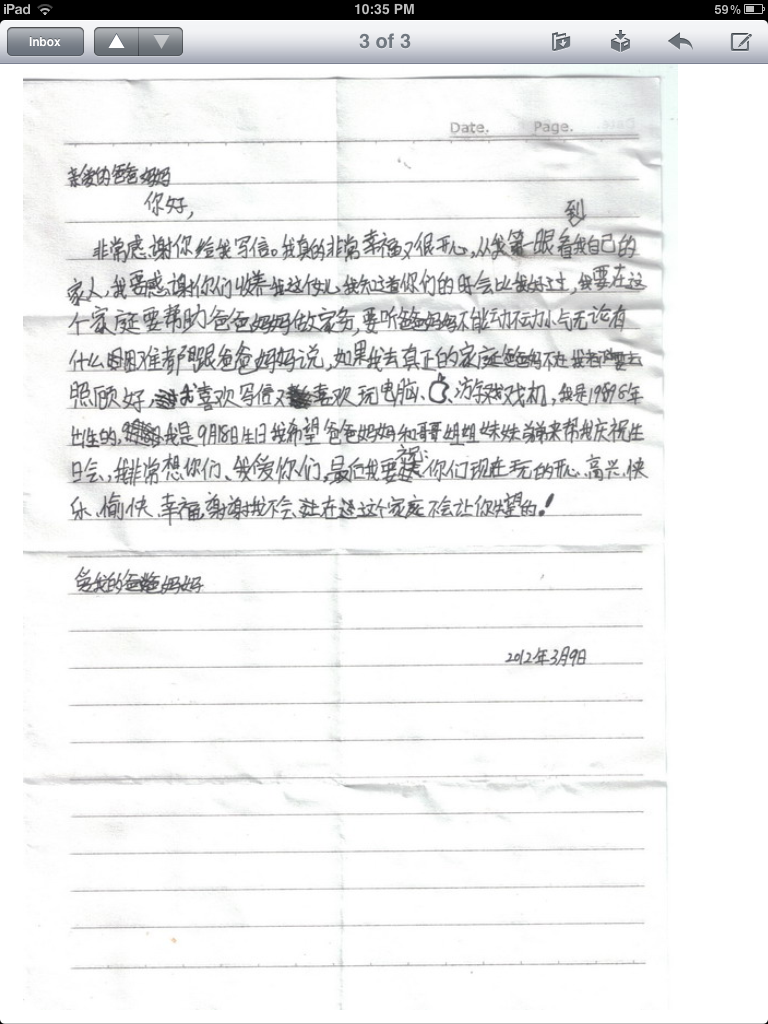 iPad 10:35 PM 59%
Inbox 3 of 3
Date. Page.
亲爱的爸爸妈妈
你好,
到
非常感谢你给我写信。我真的非常幸福又很开心,从我第一眼看我自己的
家人,我要感谢你们收养我这个女儿,我知道你们的 会比我好过,我要在这
个家庭要帮助爸爸妈妈做家务,要听爸爸妈妈不能动不动小气无论有
什么困难都跟爸爸妈妈说,如果我去真正的家庭爸爸妈 不在我 要去
照顾好, 我喜欢写信又 喜欢玩电脑、 游戏戏机,我是1998年
出生的, 我是9月18日生日我希望爸爸妈妈和哥哥姐姐妹妹弟弟来帮我庆祝生
日会,我非常想你们、我爱你们,最后我要祝:你们现在玩的开心、高兴、快
乐、愉快、幸福,谢谢我不会 在 这个家庭不会让你失望的!
爱我的爸爸妈妈
2012年3月9日